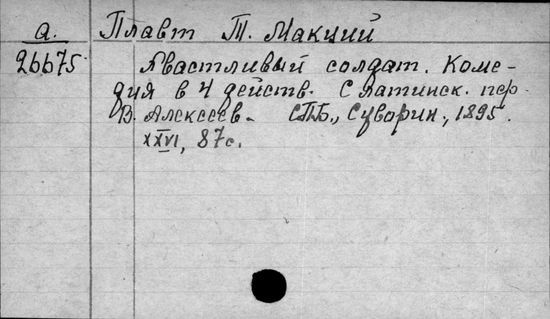 а. Плавт Т. Макций
26675 Хвастливый солдат. Коме-
дия в 4 действ. С латинск. пер.
В. Алексеев. СПБ., Суворин, 1895.
XXVI, 87с.